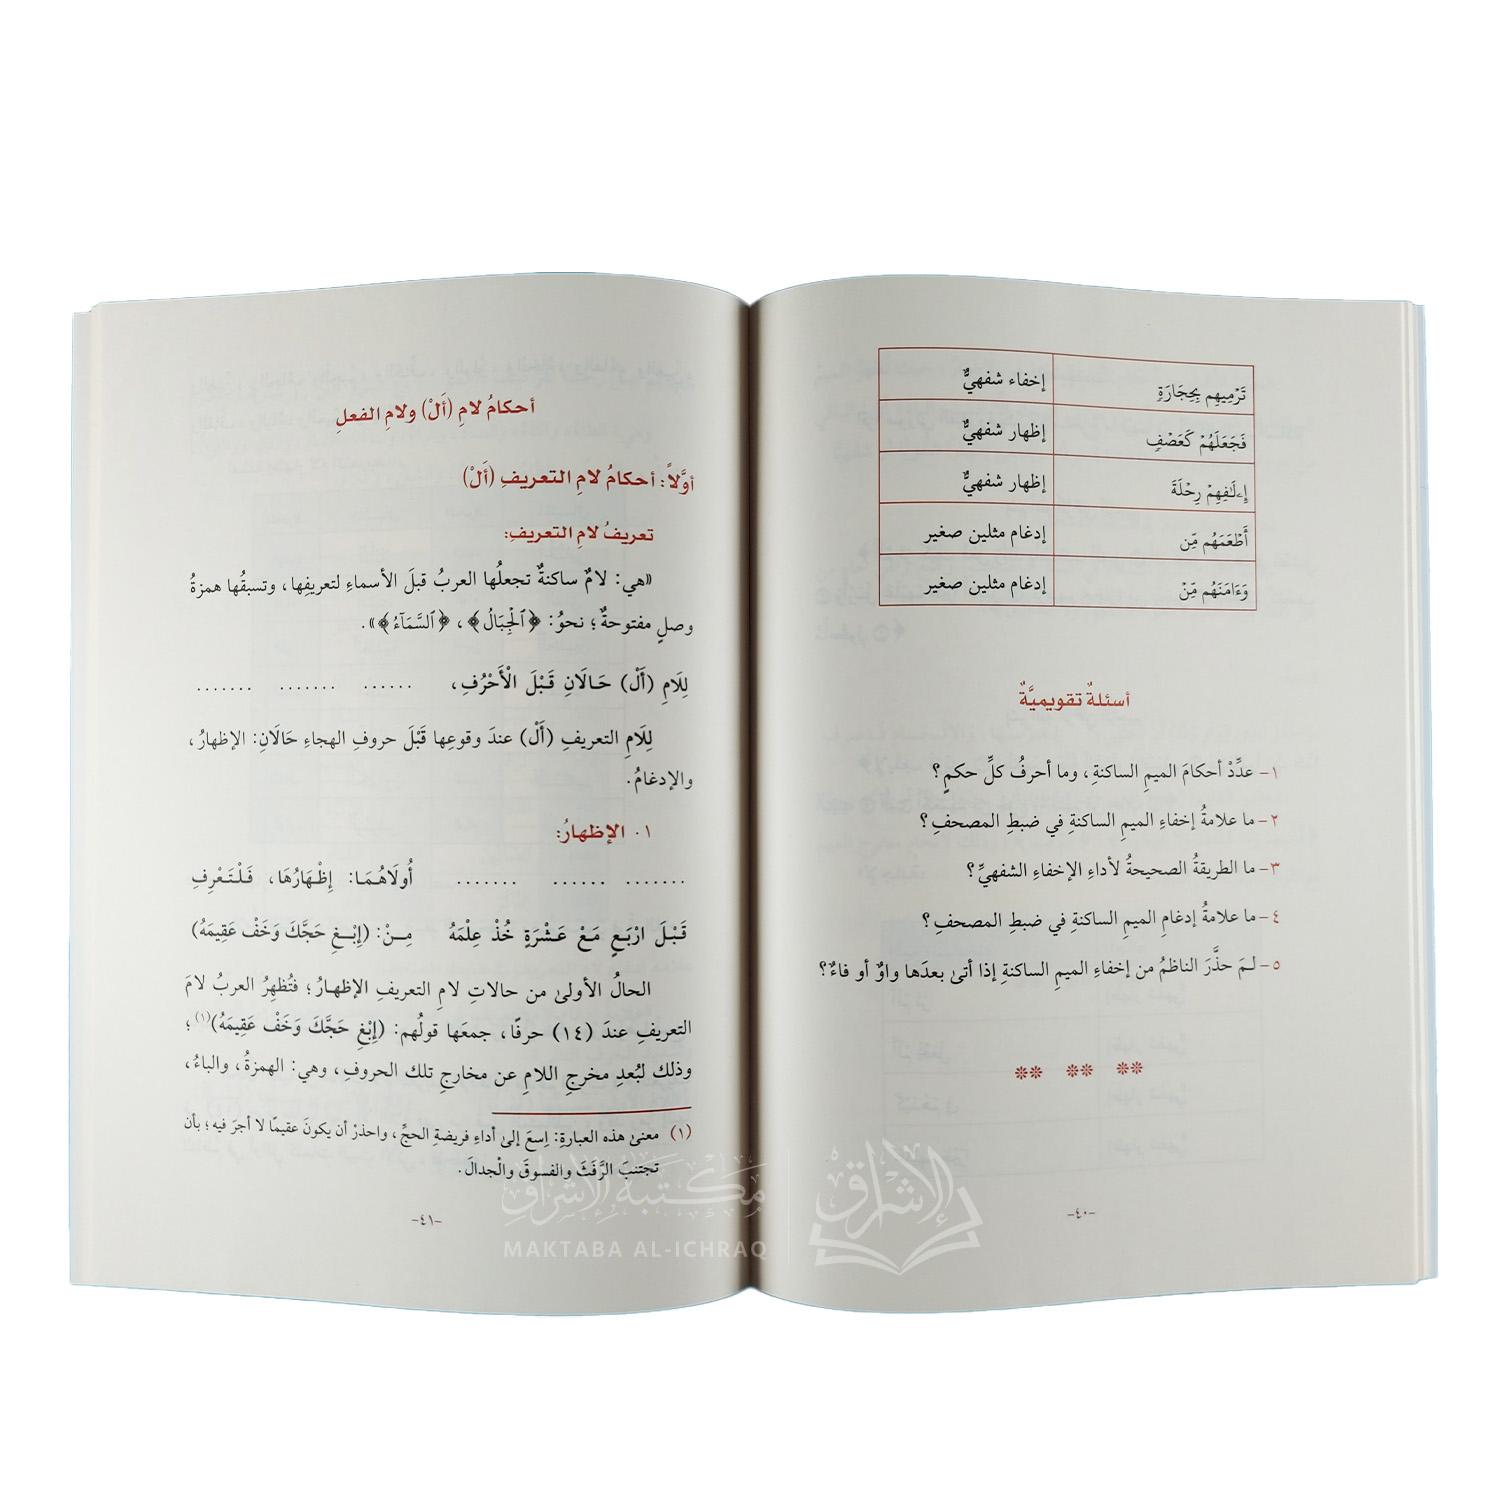 تَرۡمِيهِم بِحِجَارَةٖ إخفاء شفهيٌّ
فَجَعَلَهُمۡ كَعَصۡفٖ إظهار شفهيٌّ
إِۦلَٰفِهِمۡ رِحۡلَةَ إظهار شفهيٌّ
أَطۡعَمَهُم مِّن إدغام مثلين صغير
وَءَامَنَهُم مِّنۡ إدغام مثلين صغير
أسئلةٌ تقويميَّةٌ
١- عدِّدْ أحكامَ الميمِ الساكنةِ، وما أحرفُ كلِّ حكمٍ؟
٢- ما علامةُ إخفاءِ الميمِ الساكنةِ في ضبطِ المصحفِ؟
٣- ما الطريقةُ الصحيحةُ لأداءِ الإخفاءِ الشفهيِّ؟
٤- ما علامةُ إدغامِ الميمِ الساكنةِ في ضبطِ المصحفِ؟
٥- لمَ حذَّرَ الناظمُ من إخفاءِ الميمِ الساكنةِ إذا أتىٰ بعدَها واوٌ أو فاءٌ؟
** ** **
-٤٠-
أحكامُ لامِ (أَلْ) ولامِ الفعلِ
أوَّلاً: أحكامُ لامِ التعريفِ (أَلْ)
تعريفُ لامِ التعريفِ:
«هي: لامٌ ساكنةٌ تجعلُها العربُ قبلَ الأسماءِ لتعريفِها، وتسبقُها همزةُ
وصلٍ مفتوحةٌ؛ نحوُ: ﴿ٱلۡجِبَالُ﴾، ﴿ٱلسَّمَآءُ﴾».
لِلَامِ (أَلْ) حَالَانِ قَبْلَ الْأَحْرُفِ، ...... ....... .......
لِلَامِ التعريفِ (أَلْ) عندَ وقوعِها قَبْلَ حروفِ الهجاءِ حَالَانِ: الإظهارُ،
والإدغامُ.
١. الإظهارُ:
....... ...... ....... أُولَاهُمَا: إِظْهَارُهَا، فَلْتَعْرِفِ
قَبْلَ ارْبَعٍ مَعْ عَشْرَةٍ خُذْ عِلْمَهُ مِنْ: (إِبْغِ حَجَّكَ وَخَفْ عَقِيمَهُ)
الحالُ الأولىٰ من حالاتِ لامِ التعريفِ الإظهارُ؛ فتُظهِرُ العربُ لامَ
التعريفِ عندَ (١٤) حرفًا، جمعَها قولُهم: (إِبْغِ حَجَّكَ وَخَفْ عَقِيمَهُ)(١)؛
وذلك لبُعدِ مخرجِ اللامِ عن مخارجِ تلك الحروفِ، وهي: الهمزةُ، والباءُ،
(١) معنىٰ هذه العبارةِ: اِسعَ إلىٰ أداءِ فريضةِ الحجِّ، واحذرْ أن يكونَ عقيمًا لا أجرَ فيه؛ بأن
تجتنبَ الرَّفَثَ والفسوقَ والْجدالَ.
-٤١-
مكتبة الإشراق
MAKTABA AL-ICHRAQ
الإشراق